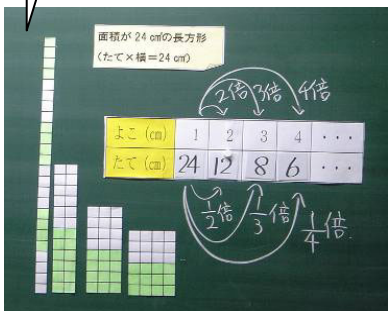 面積が 24 ㎠の長方形
(たて×横=24 ㎠)
2倍 3倍 4倍
よこ (cm) 1 2 3 4 ・・・
たて (cm) 24 12 8 6 ・・・
1/2倍 1/3倍 1/4倍